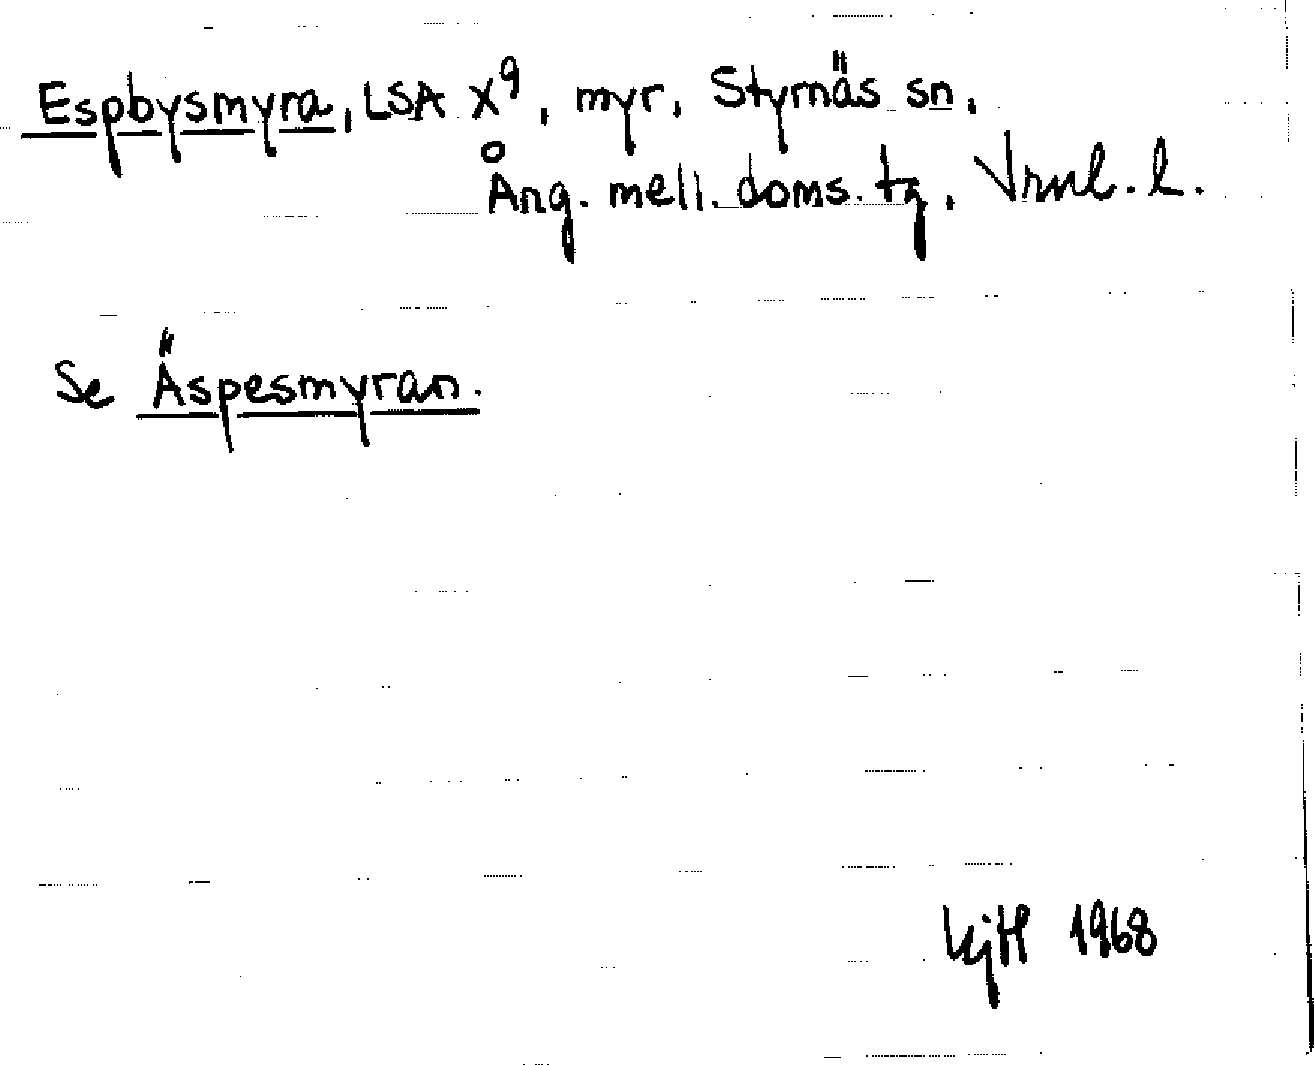 Espbysmyra, LSA X⁹, myr, Styrnäs sn,
Ång. mell. doms. tg, Vrnl. l.
Se Äspesmyran.
1968